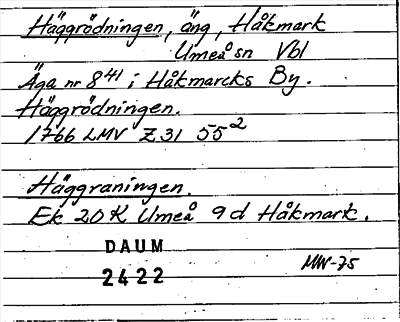 Häggrödningen, äng, Håkmark
Umeå sn Vbl
Äga nr 8⁴¹ i Håkmarcks By.
Häggrödningen.
1766 LMV Z31 55²
Häggraningen.
Ek 20K Umeå 9d Håkmark.
DAUM
2422
MW-75